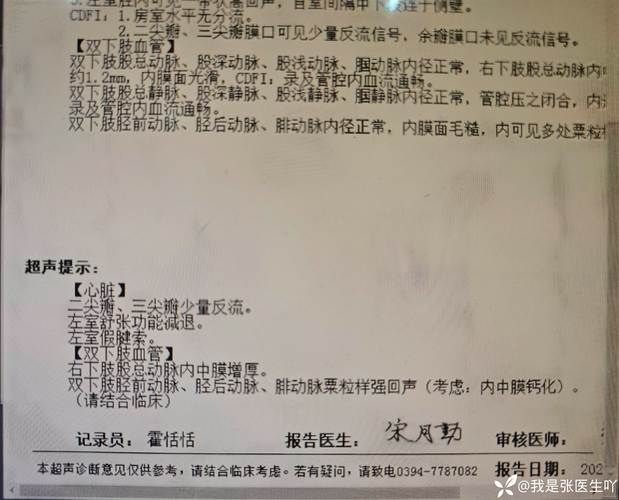 3.左室腔内可见一带状强回声，自室间隔中下段连于侧壁。
CDFI：1.房室水平无分流。
2.二尖瓣、三尖瓣膜口可见少量反流信号，余瓣膜口未见反流信号。
【双下肢血管】
双下肢股总动脉、股深动脉、股浅动脉、腘动脉内径正常，右下肢股总动脉内
约1.2mm，内膜面光滑，CDFI：录及管腔内血流通畅。
双下肢股总静脉、股深静脉、股浅静脉、腘静脉内径正常，管腔压之闭合，内
录及管腔内血流通畅。
双下肢胫前动脉、胫后动脉、腓动脉内径正常，内膜面毛糙，内可见多处粟粒样
超声提示：
【心脏】
二尖瓣、三尖瓣少量反流。
左室舒张功能减退。
左室假腱索。
【双下肢血管】
右下肢股总动脉内中膜增厚。
双下肢胫前动脉、胫后动脉、腓动脉粟粒样强回声（考虑：内中膜钙化）。
（请结合临床）
记录员：霍恬恬 报告医生：宋月勤 审核医师：
本超声诊断意见仅供参考，请结合临床考虑。若有疑问，请致电0394-7787082 报告日期：202
@我是张医生吖